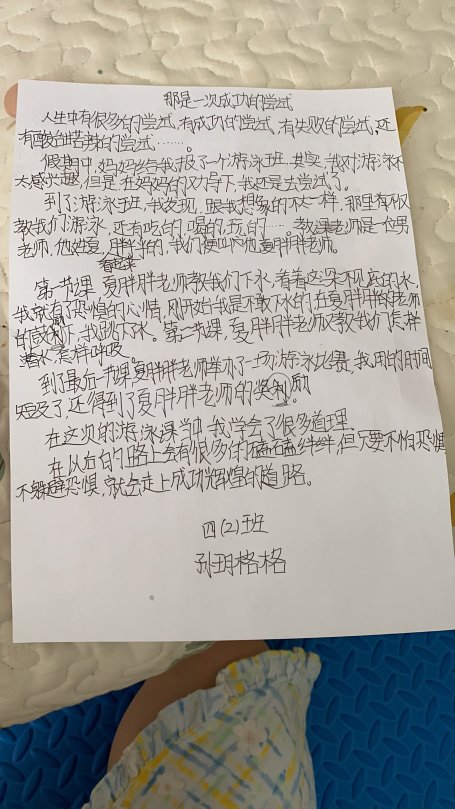 那是一次成功的尝试
人生中有很多的尝试,有成功的尝试,有失败的尝试,还
有酸甜苦辣的尝试,……。
假期中,妈妈给我报了一个游泳班,其实我对游泳不
太感兴趣,但是在妈妈的劝导下,我还是去尝试了。
到了游泳班,我发现,跟我想象的不太一样,那里有
教我们游泳,还有吃的喝的玩的……。教课老师是一位男
老师,他姓夏,胖胖的,我们便叫他夏胖胖老师。
看起来
第一节课,夏胖胖老师教我们下水,看着这深不见底的水,
我就有了恐惧的心情,刚开始我是不敢下水的,在夏胖胖老师
的鼓励下,我跳下水。第二节课,夏胖胖老师又教我们怎样
潜水怎样呼吸。
到了最后一节课,夏胖胖老师举办了一场游泳比赛,我用的时间
短及了还得到了夏胖胖老师的奖励。
在这次的游泳课当中我学会了很多道理.
在以后的路上会有很多的磕磕绊绊,但只要不怕恐惧
不躲避恐惧,就会走上成功辉煌的道路。
四(2)班
孙玥格格